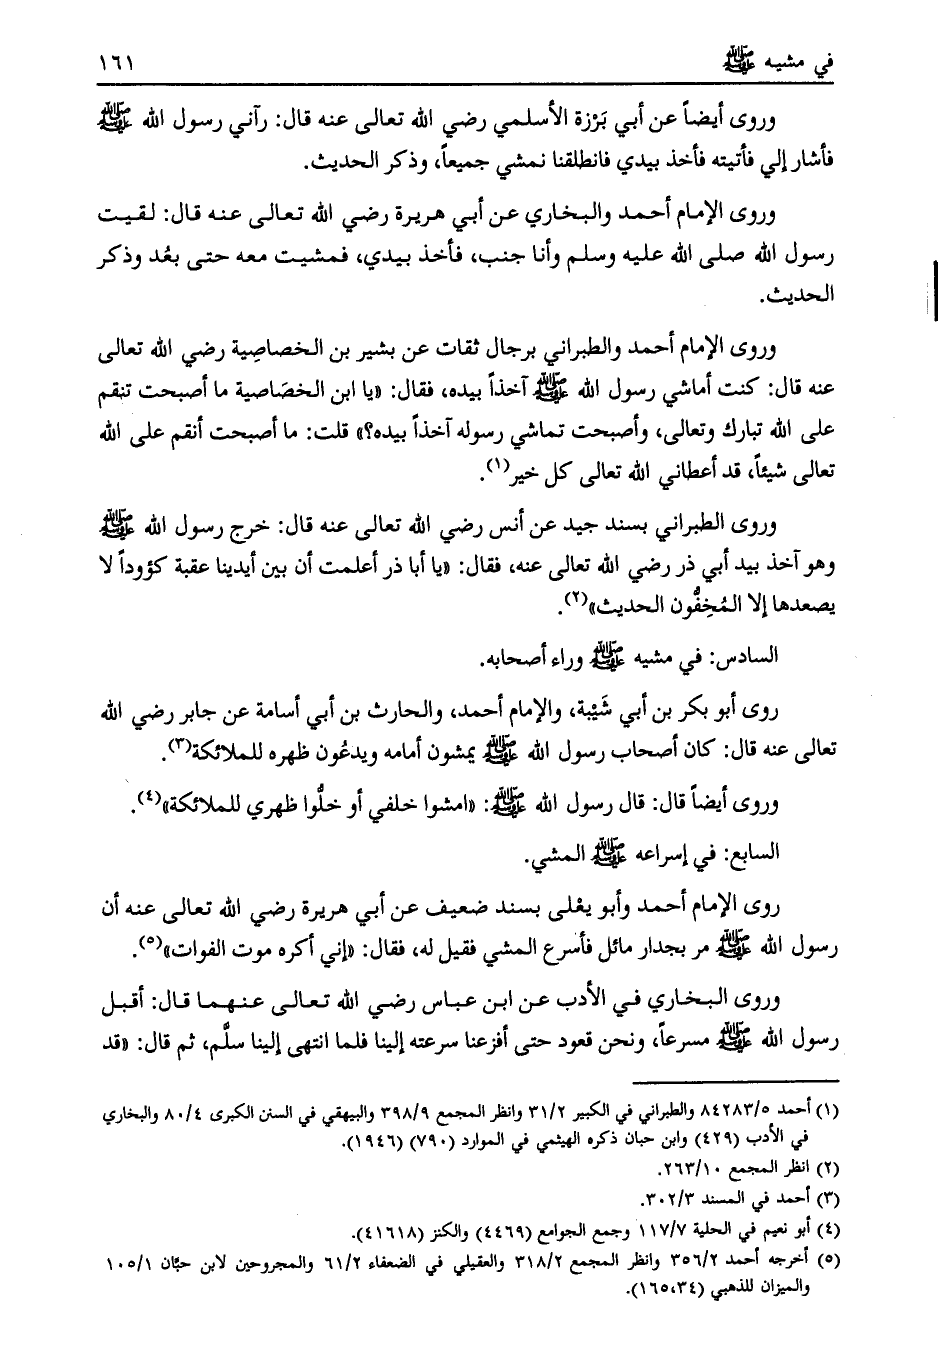 في مشيه ﷺ ١٦١
وروى أيضاً عن أبي بَرْزة الأسلمي رضي الله تعالى عنه قال: رآني رسول الله ﷺ
فأشار إلي فأتيته فأخذ بيدي فانطلقنا نمشي جميعاً، وذكر الحديث.
وروى الإمام أحمد والبخاري عن أبي هريرة رضي الله تعالى عنه قال: لقيت
رسول الله صلى الله عليه وسلم وأنا جنب، فأخذ بيدي، فمشيت معه حتى بعُد وذكر
الحديث.
وروى الإمام أحمد والطبراني برجال ثقات عن بشير بن الخصاصِية رضي الله تعالى
عنه قال: كنت أماشي رسول الله ﷺ آخذاً بيده، فقال: «يا ابن الخصَاصية ما أصبحت تنقم
على الله تبارك وتعالى، وأصبحت تماشي رسوله آخذاً بيده؟» قلت: ما أصبحت أنقم على الله
تعالى شيئاً، قد أعطاني الله تعالى كل خير(١).
وروى الطبراني بسند جيد عن أنس رضي الله تعالى عنه قال: خرج رسول الله ﷺ
وهو آخذ بيد أبي ذر رضي الله تعالى عنه، فقال: «يا أبا ذر أعلمت أن بين أيدينا عقبة كؤوداً لا
يصعدها إلا المُخِفُّون الحديث»(٢).
السادس: في مشيه ﷺ وراء أصحابه.
روى أبو بكر بن أبي شَيْبة، والإمام أحمد، والحارث بن أبي أسامة عن جابر رضي الله
تعالى عنه قال: كان أصحاب رسول الله ﷺ يمشون أمامه ويدعُون ظهره للملائكة(٣).
وروى أيضاً قال: قال رسول الله ﷺ: «امشوا خلفي أو خلُّوا ظهري للملائكة»(٤).
السابع: في إسراعه ﷺ المشي.
روى الإمام أحمد وأبو يعْلى بسند ضعيف عن أبي هريرة رضي الله تعالى عنه أن
رسول الله ﷺ مر بجدار مائل فأسرع المشي فقيل له، فقال: «إني أكره موت الفوات»(٥).
وروى البخاري في الأدب عن ابن عباس رضي الله تعالى عنهما قال: أقبل
رسول الله ﷺ مسرعاً، ونحن قعود حتى أفزعنا سرعته إلينا فلما انتهى إلينا سلَّم، ثم قال: «قد
(١) أحمد ٨٤٢٨٣/٥ والطبراني في الكبير ٣١/٢ وانظر المجمع ٣٩٨/٩ والبيهقي في السنن الكبرى ٨٠/٤ والبخاري
في الأدب (٤٢٩) وابن حبان ذكره الهيثمي في الموارد (٧٩٠) (١٩٤٦).
(٢) انظر المجمع ٢٦٣/١٠.
(٣) أحمد في المسند ٣٠٢/٣.
(٤) أبو نعيم في الحلية ١١٧/٧ وجمع الجوامع (٤٤٦٩) والكنز (٤١٦١٨).
(٥) أخرجه أحمد ٣٥٦/٢ وانظر المجمع ٣١٨/٢ والعقيلي في الضعفاء ٦١/٢ والمجروحين لابن حبَّان ١٠٥/١
والميزان للذهبي (١٦٥،٣٤).